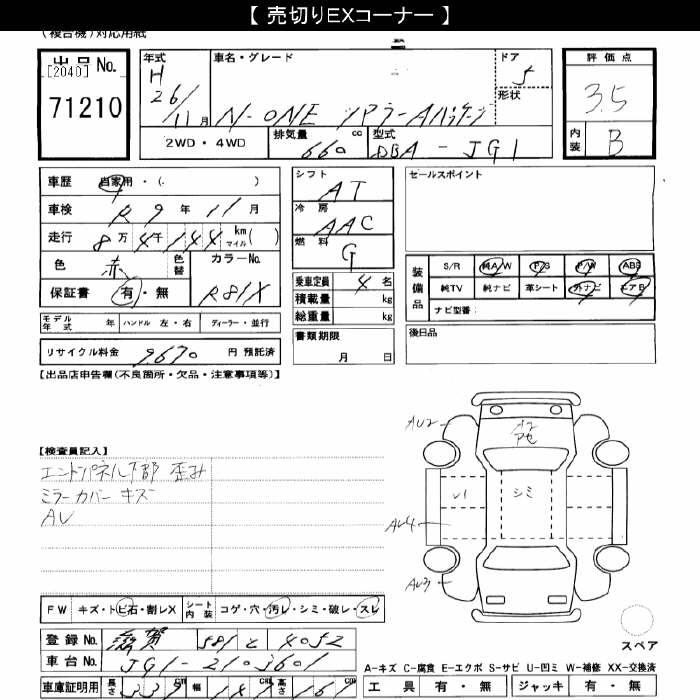 【 売切りEXコーナー 】
(複合機)対応用紙
出品 No.
[2040]
71210
年式 H 26/11月
車名・グレード N-ONE ツアラーAパッケージ
ドア 5
形状
評価点 3.5
内装 B
2WD・4WD
排気量 660 cc
型式 DBA - JG1
車歴 自家用・(. )
車検 R9年11月
走行 8万4千144 km マイル( )
色 赤 色替
カラーNo. R81X
保証書 有・無
シフト AT
冷房 AAC
燃料 G
乗車定員 4名
積載量 kg
総重量 kg
書類期限
月 日
セールスポイント
装備品
S/R 純A/W P/S P/W ABS
純TV 純ナビ 革シート 外ナビ エアB
ナビ型番:
後日品
モデル年式 年 ハンドル 左・右 ディーラー・並行
リサイクル料金 9,670 円 預託済
【出品店申告欄(不良箇所・欠品・注意事項等)】
【検査員記入】
エンドパネル下部 歪み
ミラーカバー キズ
AU
AU2
A2
アセ
U1
シミ
AU4
AU3
スペア
FW キズ・トビ石・割レX シート内装 コゲ・穴・汚レ・シミ・破レ・スレ
登録 No. 滋賀 581 と 4052
車台 No. JG1-2103601
車庫証明用 長さ 339 cm 幅 147 cm 高さ 161 cm
A-キズ C-腐食 E-エクボ S-サビ U-凹ミ W-補修 XX-交換済
工具 有・無 ジャッキ 有・無